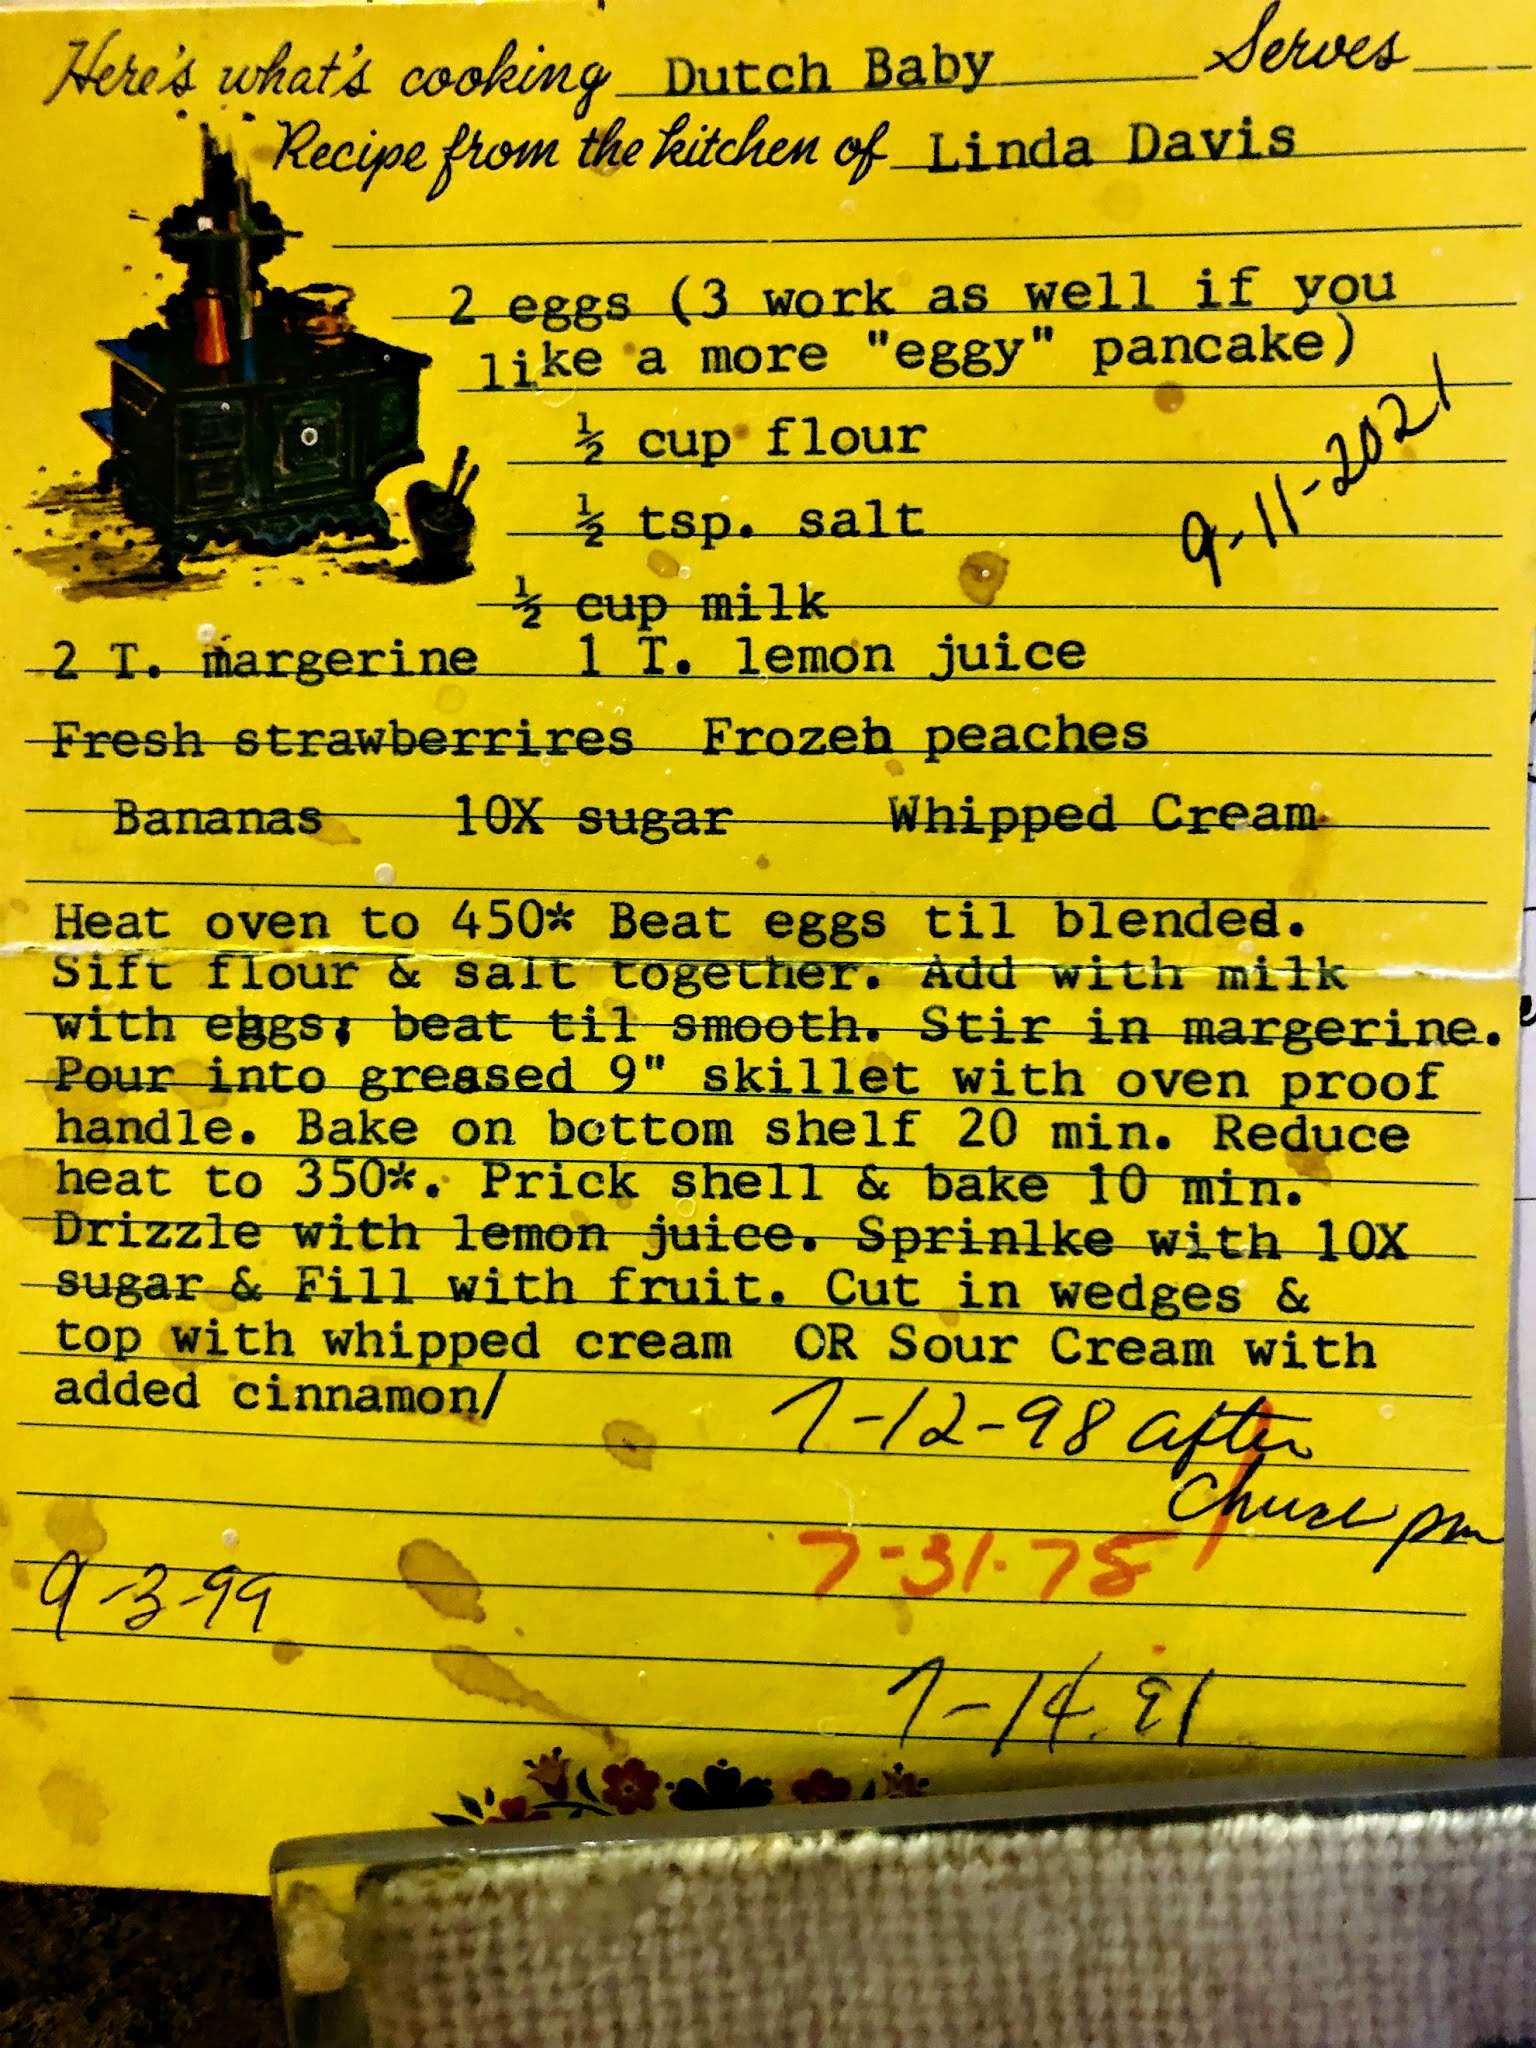 Here's what's cooking Dutch Baby Serves
Recipe from the kitchen of Linda Davis
2 eggs (3 work as well if you
like a more "eggy" pancake)
½ cup flour
9-11-2021
½ tsp. salt
½ cup milk
2 T. margerine 1 T. lemon juice
Fresh strawberrires Frozen peaches
Bananas 10X sugar Whipped Cream
Heat oven to 450* Beat eggs til blended.
Sift flour & salt together. Add with milk
with eggs; beat til smooth. Stir in margerine.
Pour into greased 9" skillet with oven proof
handle. Bake on bottom shelf 20 min. Reduce
heat to 350*. Prick shell & bake 10 min.
Drizzle with lemon juice. Sprinlke with 10X
sugar & Fill with fruit. Cut in wedges &
top with whipped cream OR Sour Cream with
added cinnamon/
7-12-98 after
pm
7-31-78
9-3-99
7-14.91